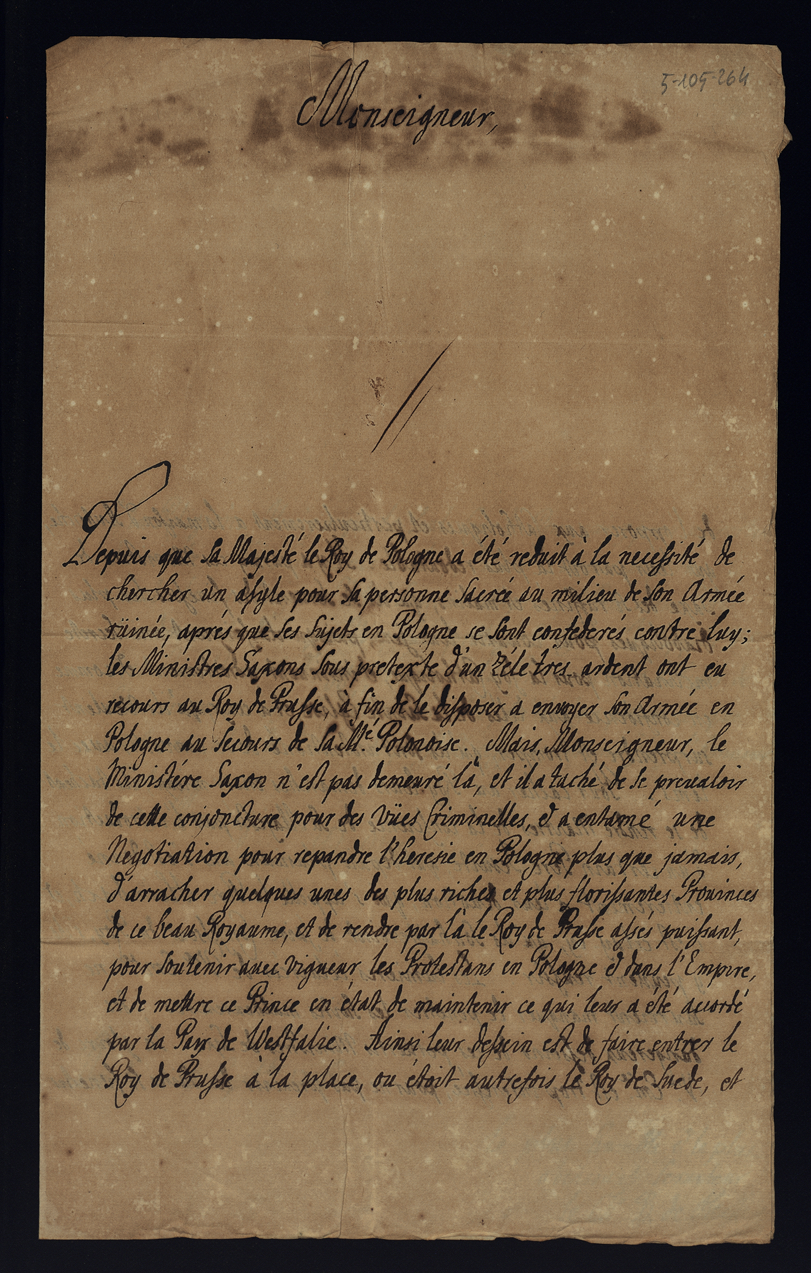 5-105-264
Monseigneur,
Depuis que Sa Majesté le Roy de Pologne a été reduit à la necessité de
chercher un asyle pour sa personne Sacrée au milieu de son Armée
rüinée, aprés que ses sujets en Pologne se sont confederés contre luy;
les Ministres Saxons sous pretexte d'un zéle tres ardent ont eu
recours au Roy de Prusse, à fin de le disposer a envoyer son Armée en
Pologne au secours de Sa M.té Polonoise. Mais, Monseigneur, le
Ministére Saxon n'est pas demeuré là, et il a taché de se prevaloir
de cette conjoncture pour des vües Criminelles, et a entamé une
Negotiation pour repandre l'heresie en Pologne plus que jamais,
d'arracher quelques unes des plus riches et plus florissantes Provinces
de ce beau Royaume, et de rendre par là le Roy de Prusse assés puissant,
pour soutenir avec vigueur les Protestans en Pologne et dans l'Empire,
et de mettre ce Prince en état de maintenir ce qui leur a été accordé
par la Paix de Westfalie. Ainsi leur dessein est de faire entrer le
Roy de Prusse à la place, ou étoit autresfois le Roy de Suede, et